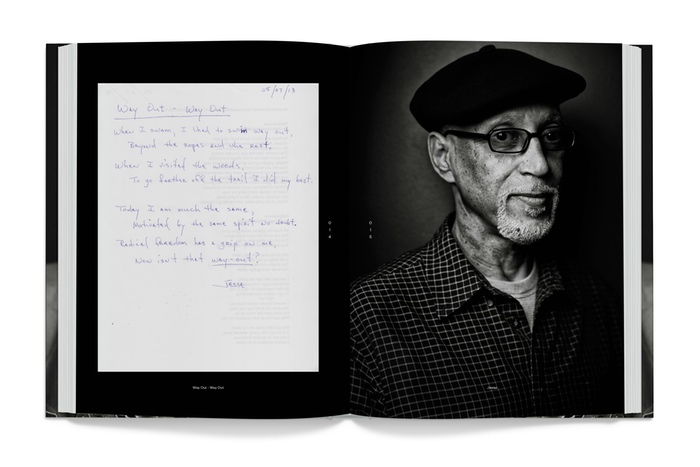 05/07/13
Way Out - Way Out
When I swam, I liked to swim way out,
Beyond the ropes and the rest.
When I visited the woods,
To go farther off the trail I did my best.
Today I am much the same,
Motivated by the same spirit no doubt.
Radical freedom has a grip on me,
Now isn't that way-out?
Jesse
Way Out - Way Out